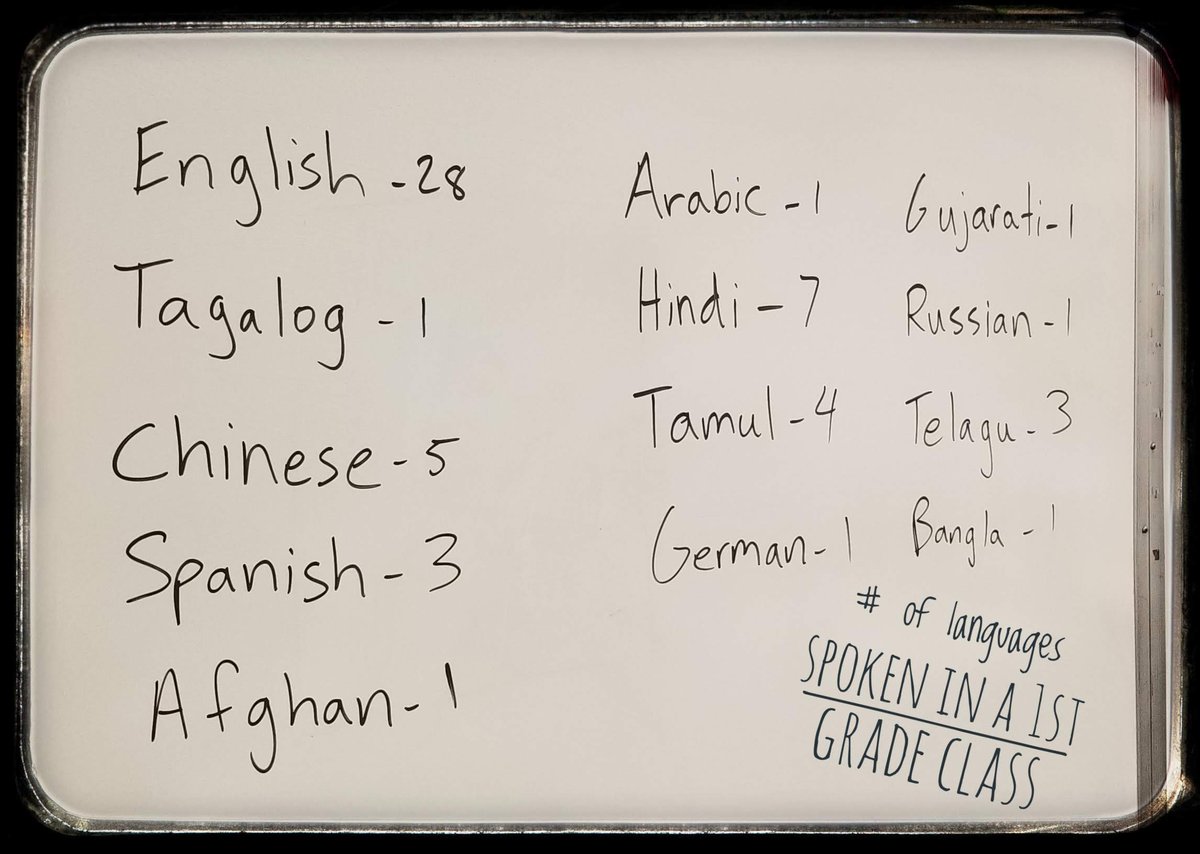 English - 28
Tagalog - 1
Chinese - 5
Spanish - 3
Afghan - 1
Arabic - 1
Hindi - 7
Tamul - 4
German - 1
Gujarati - 1
Russian - 1
Telagu - 3
Bangla - 1
# of languages
SPOKEN IN A 1ST
GRADE CLASS